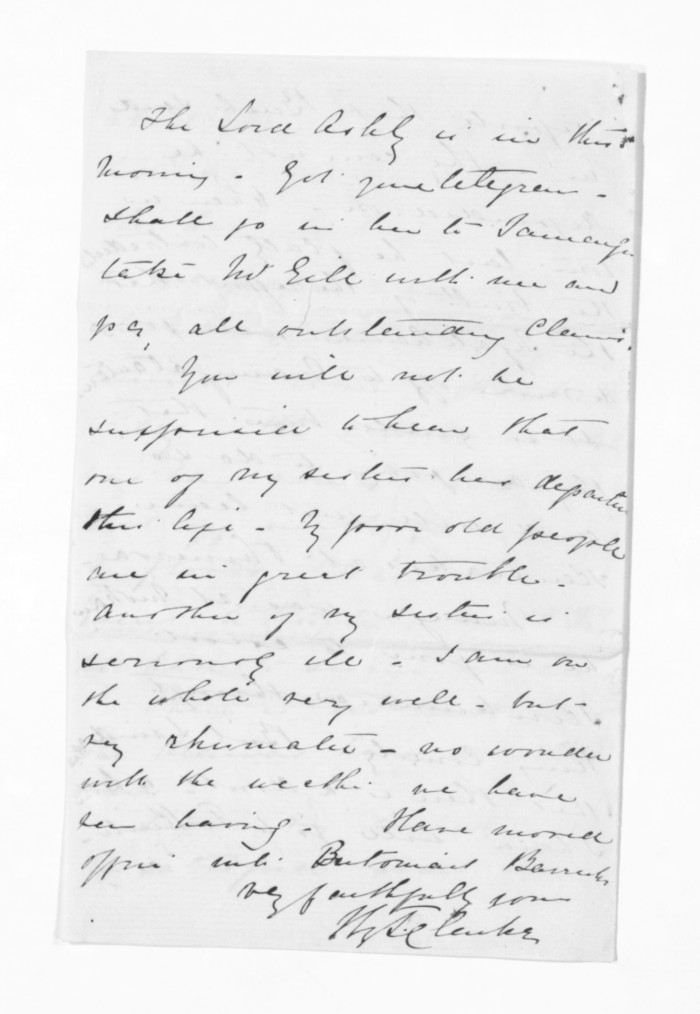 The Lord Ashley is in this
morning - Got your telegram -
shall go in her to Tauranga
take Mr Gill with me and
pay all outstanding Claims.
You will not be
surprised to hear that
one of my sisters has departed
this life - My poor old people
are in great trouble -
another of my sisters is
seriously ill - I am on
the whole very well - but -
very rheumatic - no wonder
with the weather we have
been having - Have moved
office into Barracks
very faithfully yours
Hy T. Clarke